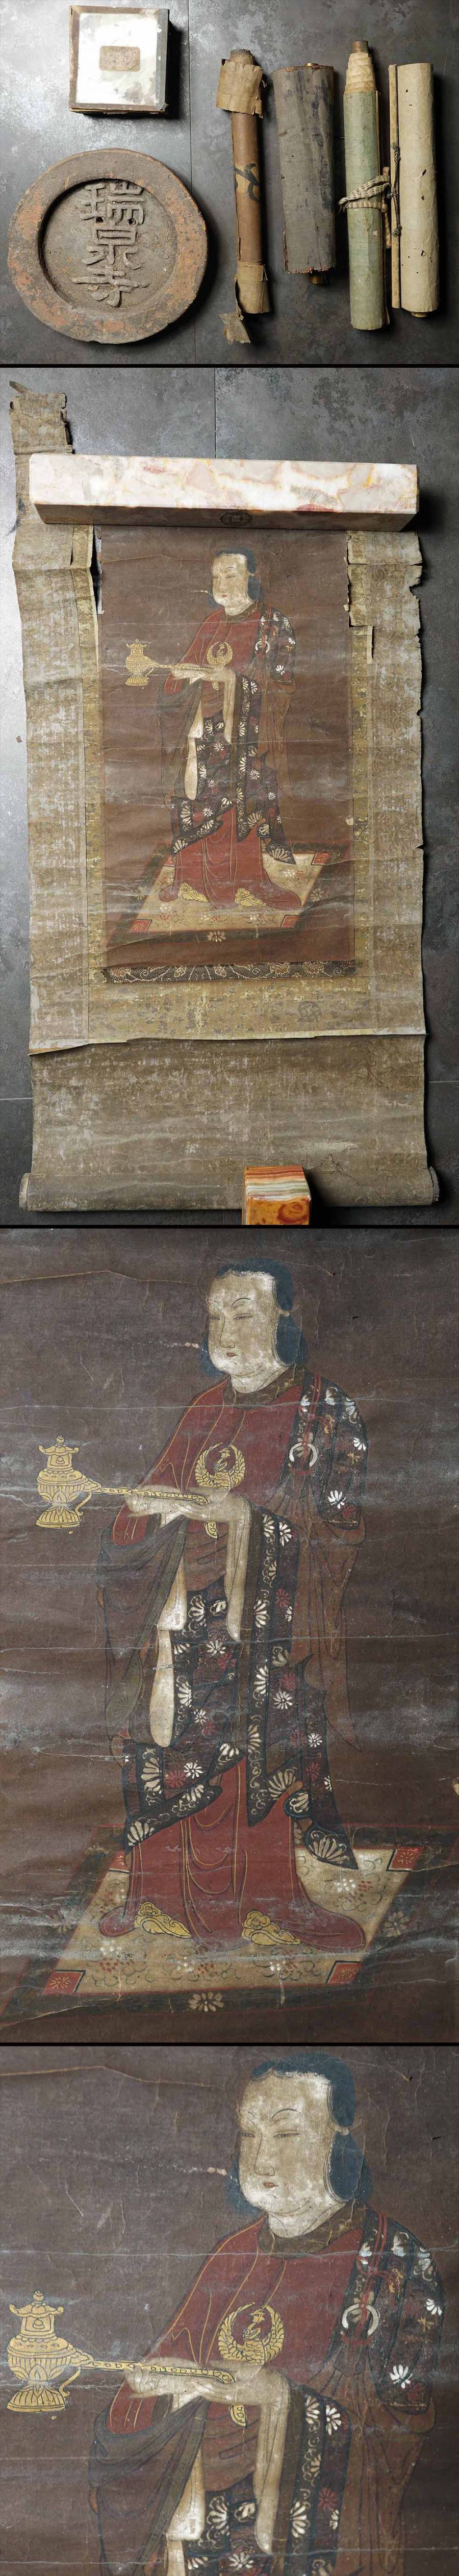 瑞
泉
寺